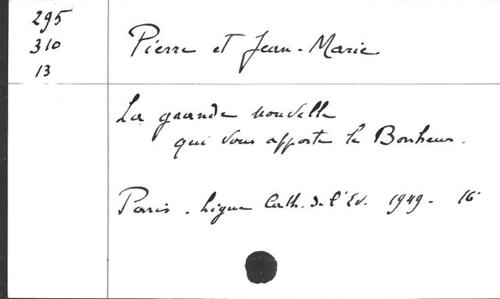 295
310
13
Pierre et Jean-Marie
La grande nouvelle
qui vous apporte le Bonheur.
Paris. Ligue Cath. de l'Ev. 1949 - 16°